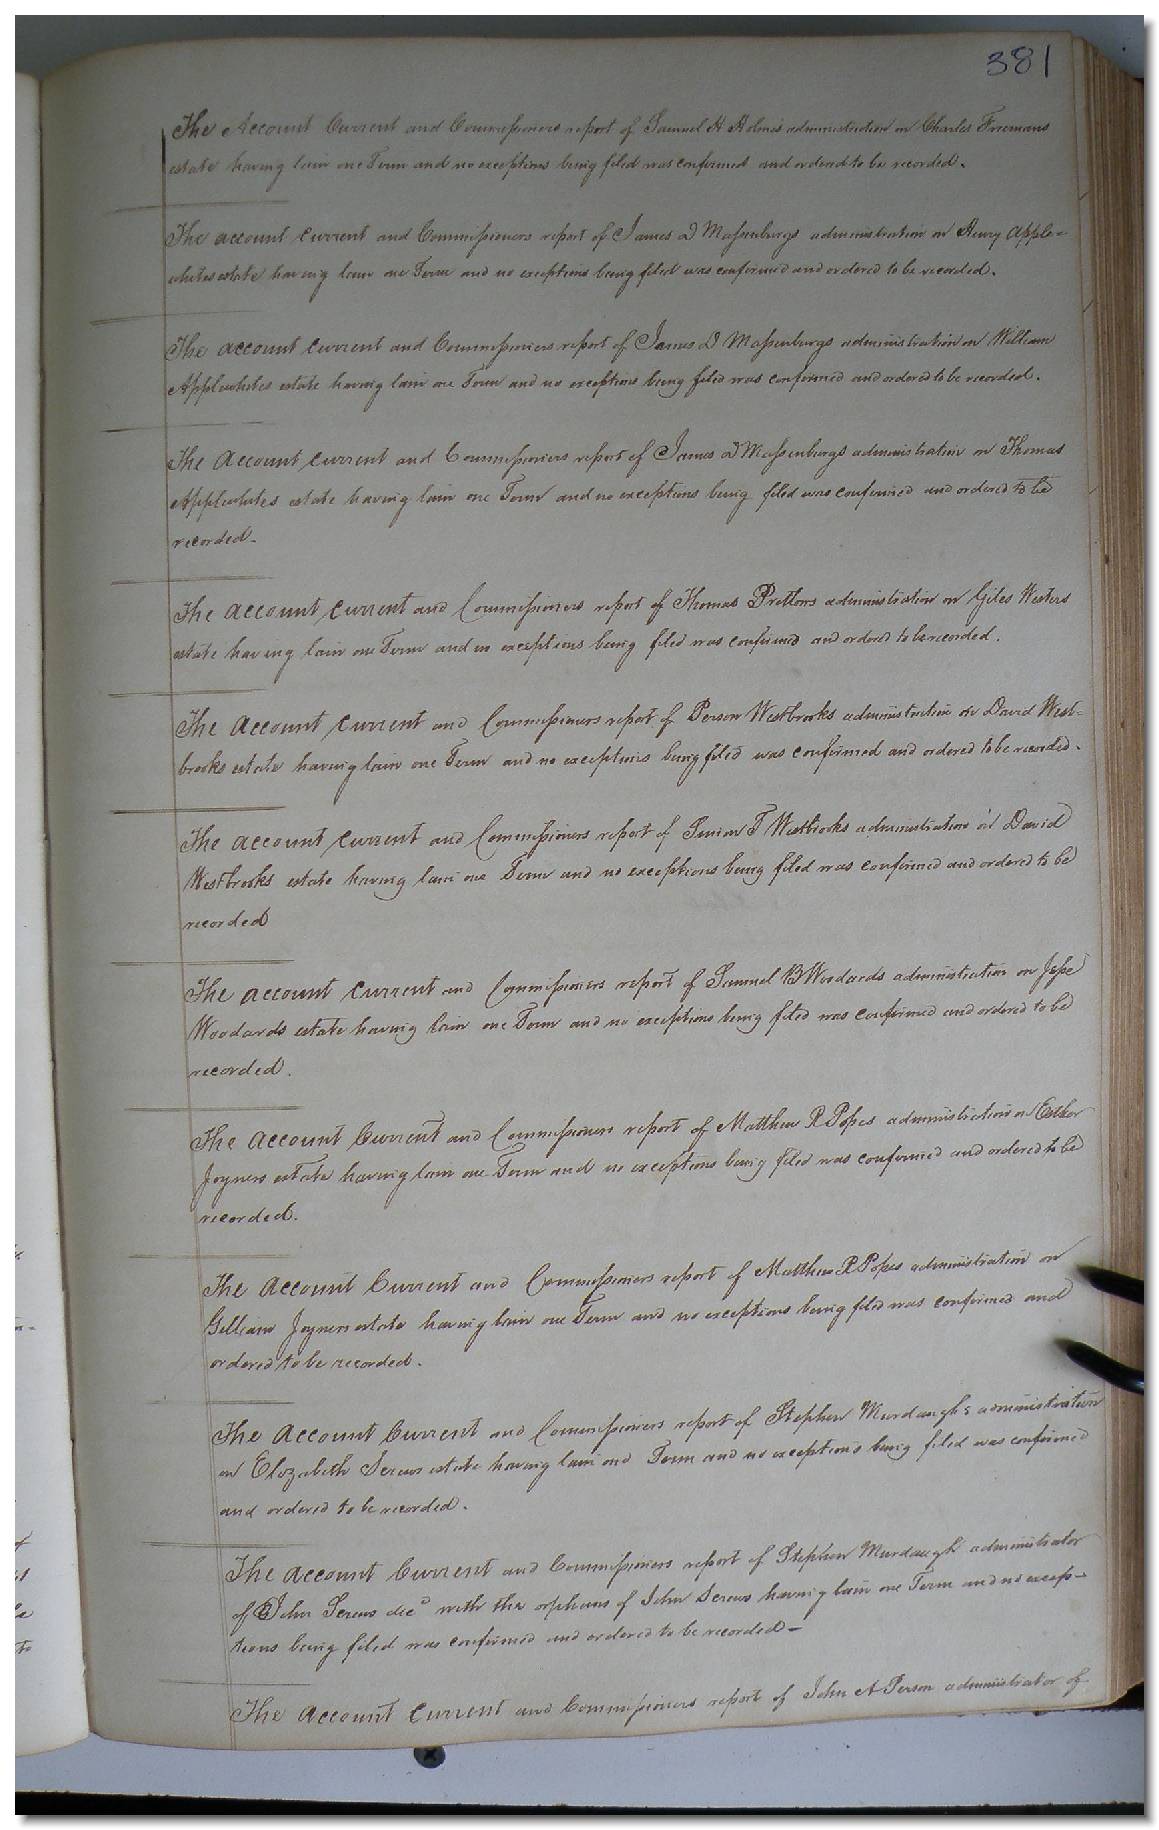 381
The Account Current and Commissioners report of Samuel H Holmes administration on Charles Freemans
estate having lain one Term and no exceptions being filed was confirmed and ordered to be recorded.
The account current and Commissioners report of James D Massenburgs administration on Henry Apple-
whites estate having lain one Term and no exceptions being filed was confirmed and ordered to be recorded.
The account current and Commissioners report of James D Massenburgs administration on William
Applewhites estate having lain one Term and no exceptions being filed was confirmed and ordered to be recorded.
The account current and Commissioners report of James D Massenburgs administration on Thomas
Applewhites estate having lain one Term and no exceptions being filed was confirmed and ordered to be
recorded.
The account current and Commissioners report of Thomas Pretlows administration on Giles Westers
estate having lain one Term and no exceptions being filed was confirmed and ordered to be recorded.
The account current and Commissioners report of Person Westbrooks administration on David West-
brooks estate having lain one Term and no exceptions being filed was confirmed and ordered to be recorded.
The account current and Commissioners report of T Westbrooks administration on David
Westbrooks estate having lain one Term and no exceptions being filed was confirmed and ordered to be
recorded
The account current and Commissioners report of Samuel B Woodards administration on Jesse
Woodards estate having lain one Term and no exceptions being filed was confirmed and ordered to be
recorded.
The account Current and Commissioners report of Matthew R Popes administration on Esther
Joyners estate having lain one Term and no exceptions being filed was confirmed and ordered to be
recorded.
The account Current and Commissioners report of Matthew R Popes administration on
Gilliam Joyners estate having lain one Term and no exceptions being filed was confirmed and
ordered to be recorded.
The account Current and Commissioners report of Stephen Murdaughs administration
on Elizabeth Screws estate having lain one Term and no exceptions being filed was confirmed
and ordered to be recorded.
The account Current and Commissioners report of Stephen Murdaugh administrator
of John Screws decd with the orphans of John Screws having lain one Term and no excep-
tions being filed was confirmed and ordered to be recorded-
The account current and Commissioners report of John A Person administrator of